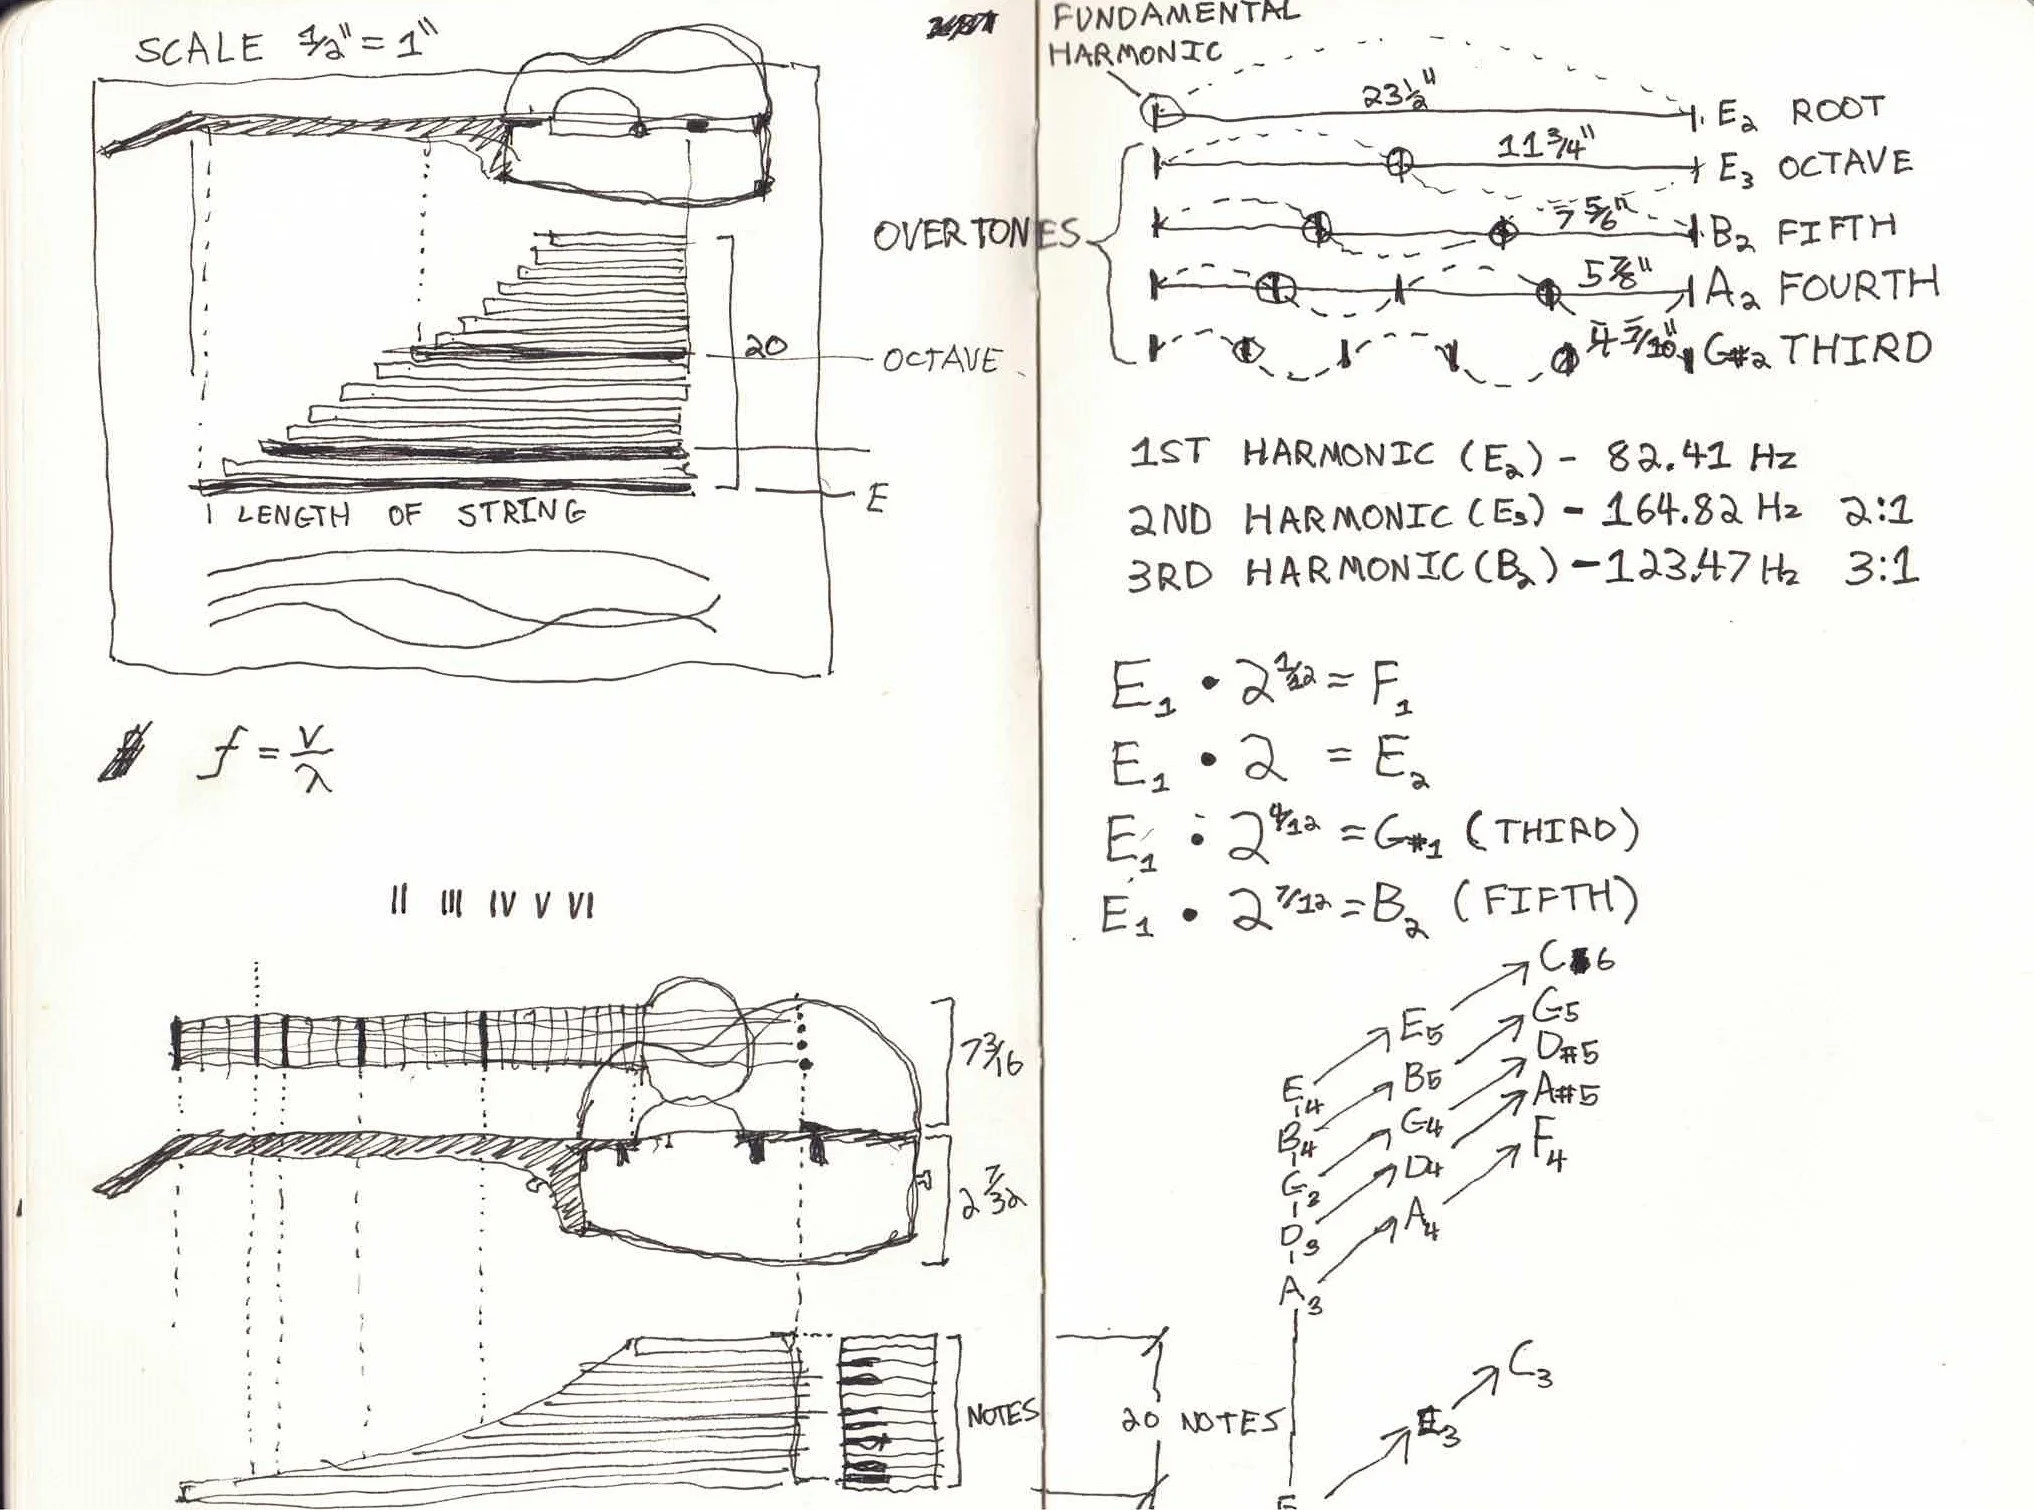 SCALE 1/2" = 1"
20
OCTAVE
E
LENGTH OF STRING
f = v/λ
II III IV V VI
7 3/16
2 7/32
NOTES
FUNDAMENTAL
HARMONIC
23 1/2" E2 ROOT
11 3/4" E3 OCTAVE
OVERTONES
7 5/6" B2 FIFTH
5 7/8" A2 FOURTH
4 7/10" G#2 THIRD
1ST HARMONIC (E2) - 82.41 Hz
2ND HARMONIC (E3) - 164.82 Hz 2:1
3RD HARMONIC (B2) - 123.47 Hz 3:1
E1 • 2^1/12 = F1
E1 • 2 = E2
E1 • 2^4/12 = G#1 (THIRD)
E1 • 2^7/12 = B2 (FIFTH)
E4 E5 C6
B4 B5 G5
G4 D#5
D3 D4 A#5
A3 A4 F4
20 NOTES
E E3 C3